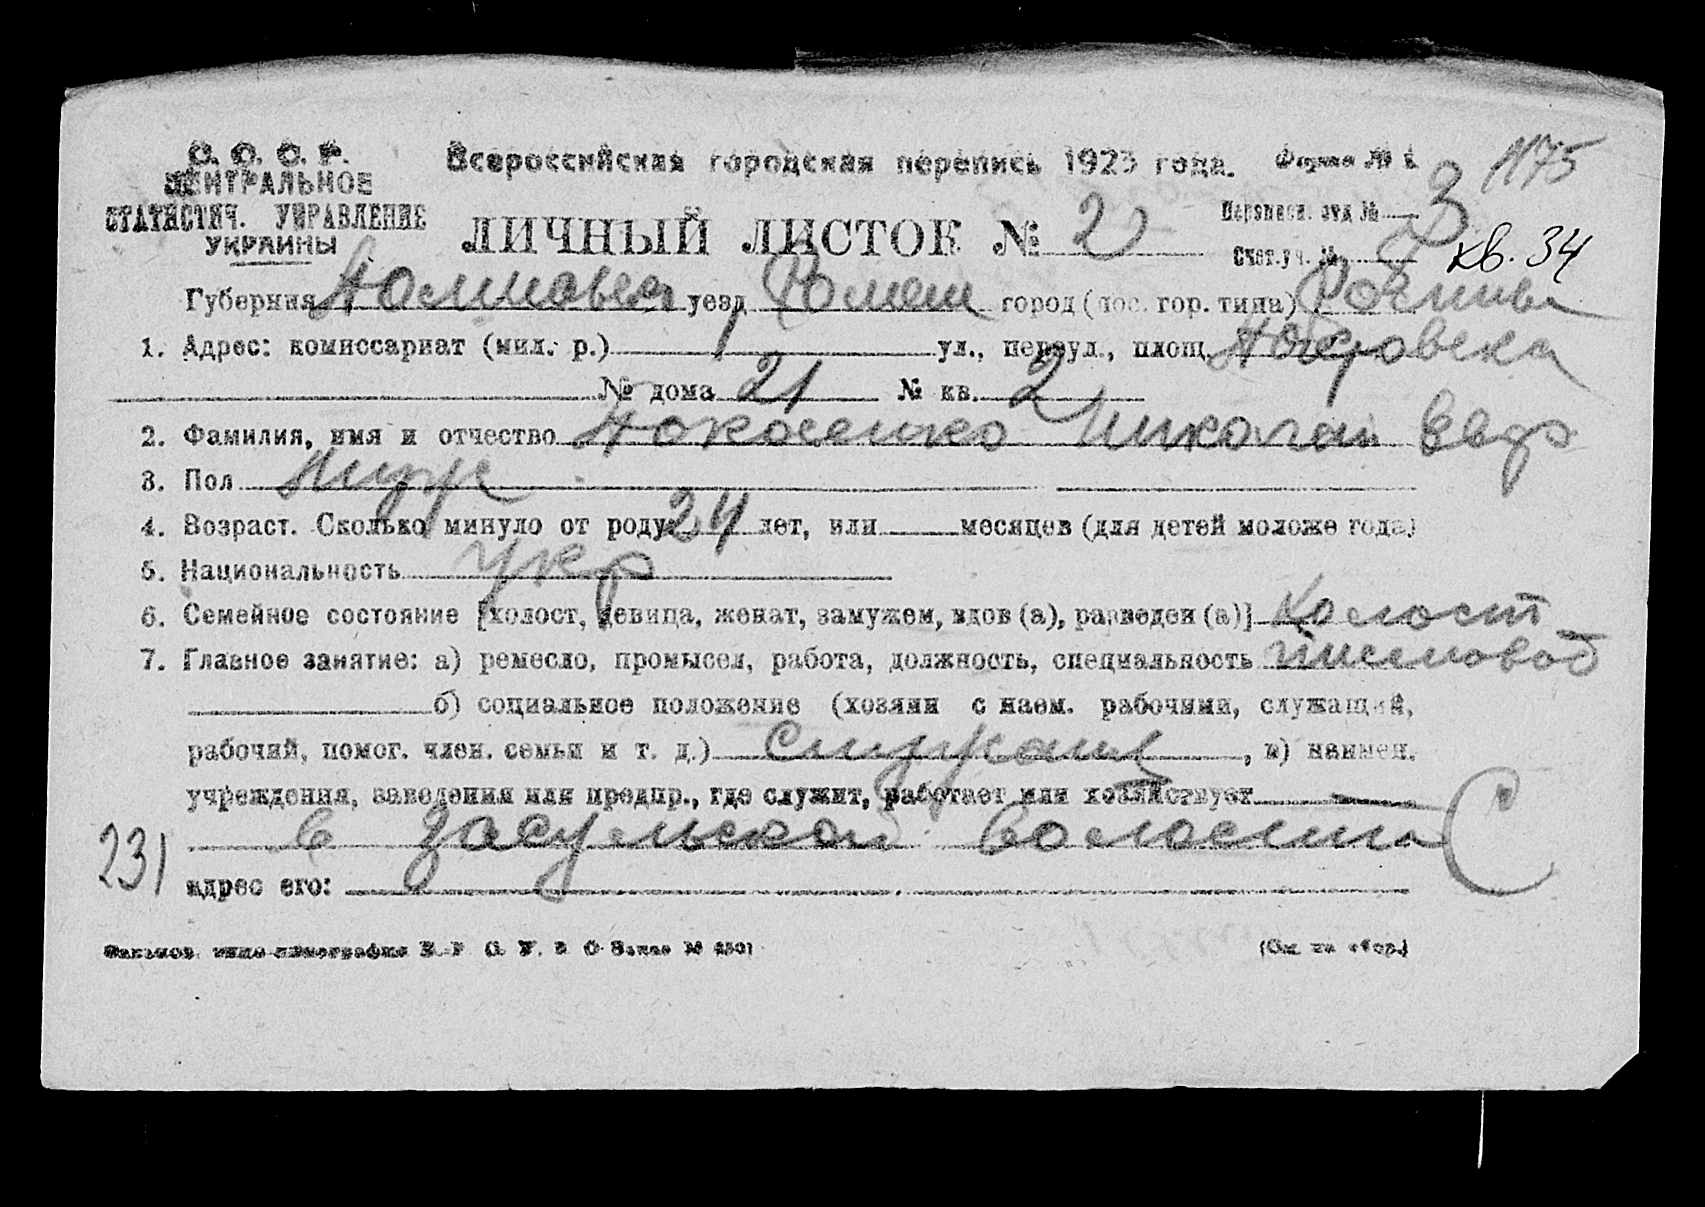 С. С. С. Р. Всероссийская городская перепись 1923 года. Форма № 1. 1175
ЦЕНТРАЛЬНОЕ
СТАТИСТИЧ. УПРАВЛЕНИЕ Переписн. отд № 3
УКРАИНЫ ЛИЧНЫЙ ЛИСТОК № 2 Счет. уч. № кв. 34
Губерния уезд Ромен город (пос. гор. типа)
1. Адрес: комиссариат (мил. р.) 1 ул., переул., площ.
№ дома 21 № кв. 2
2. Фамилия, имя и отчество Николай Евф
3. Пол муж
4. Возраст. Сколько минуло от роду 24 лет, или месяцев (для детей моложе года)
5. Национальность укр
6. Семейное состояние [холост, девица, женат, замужем, вдов (а), разведен (а)] холост
7. Главное занятие: а) ремесло, промысел, работа, должность, специальность
б) социальное положение (хозяин с наем. рабочими, служащий,
рабочий, помог. член. семьи и т. д.) служащ, в) наимен.
учреждения, заведения или предпр., где служит, работает или хозяйствует
в Засульской волости С
231 адрес его:
(См. на обор.)